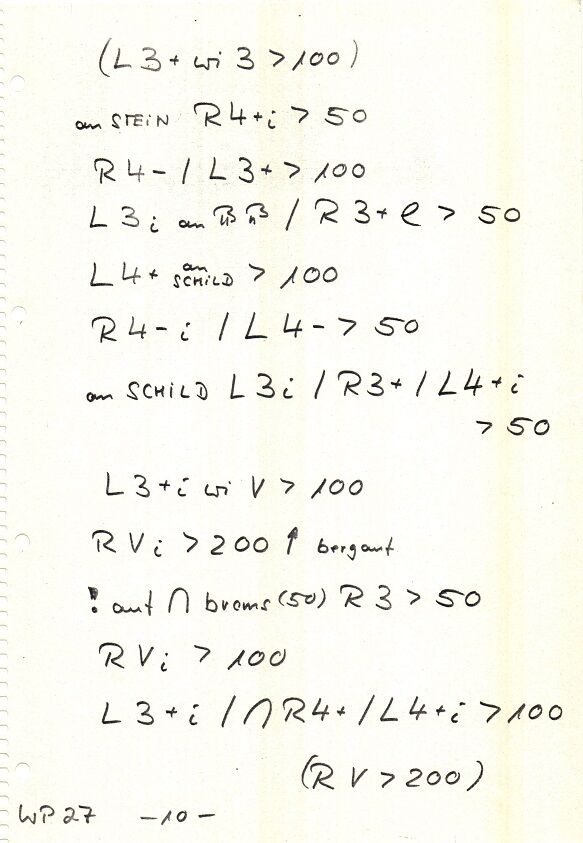 (L 3+ wi 3 > 100)
an STEIN R4+i > 50
R4- / L3+ > 100
L3i an / R3+ e > 50
L4+ an SCHILD > 100
R4-i / L4- > 50
an SCHILD L3i / R3+ / L4+i
> 50
L3+i wi V > 100
R Vi > 200 ↑ bergauf
! auf ∩ brems (50) R3 > 50
R Vi > 100
L3+i / ∩ R4+ / L4+i > 100
(R V > 200)
WP 27 -10-